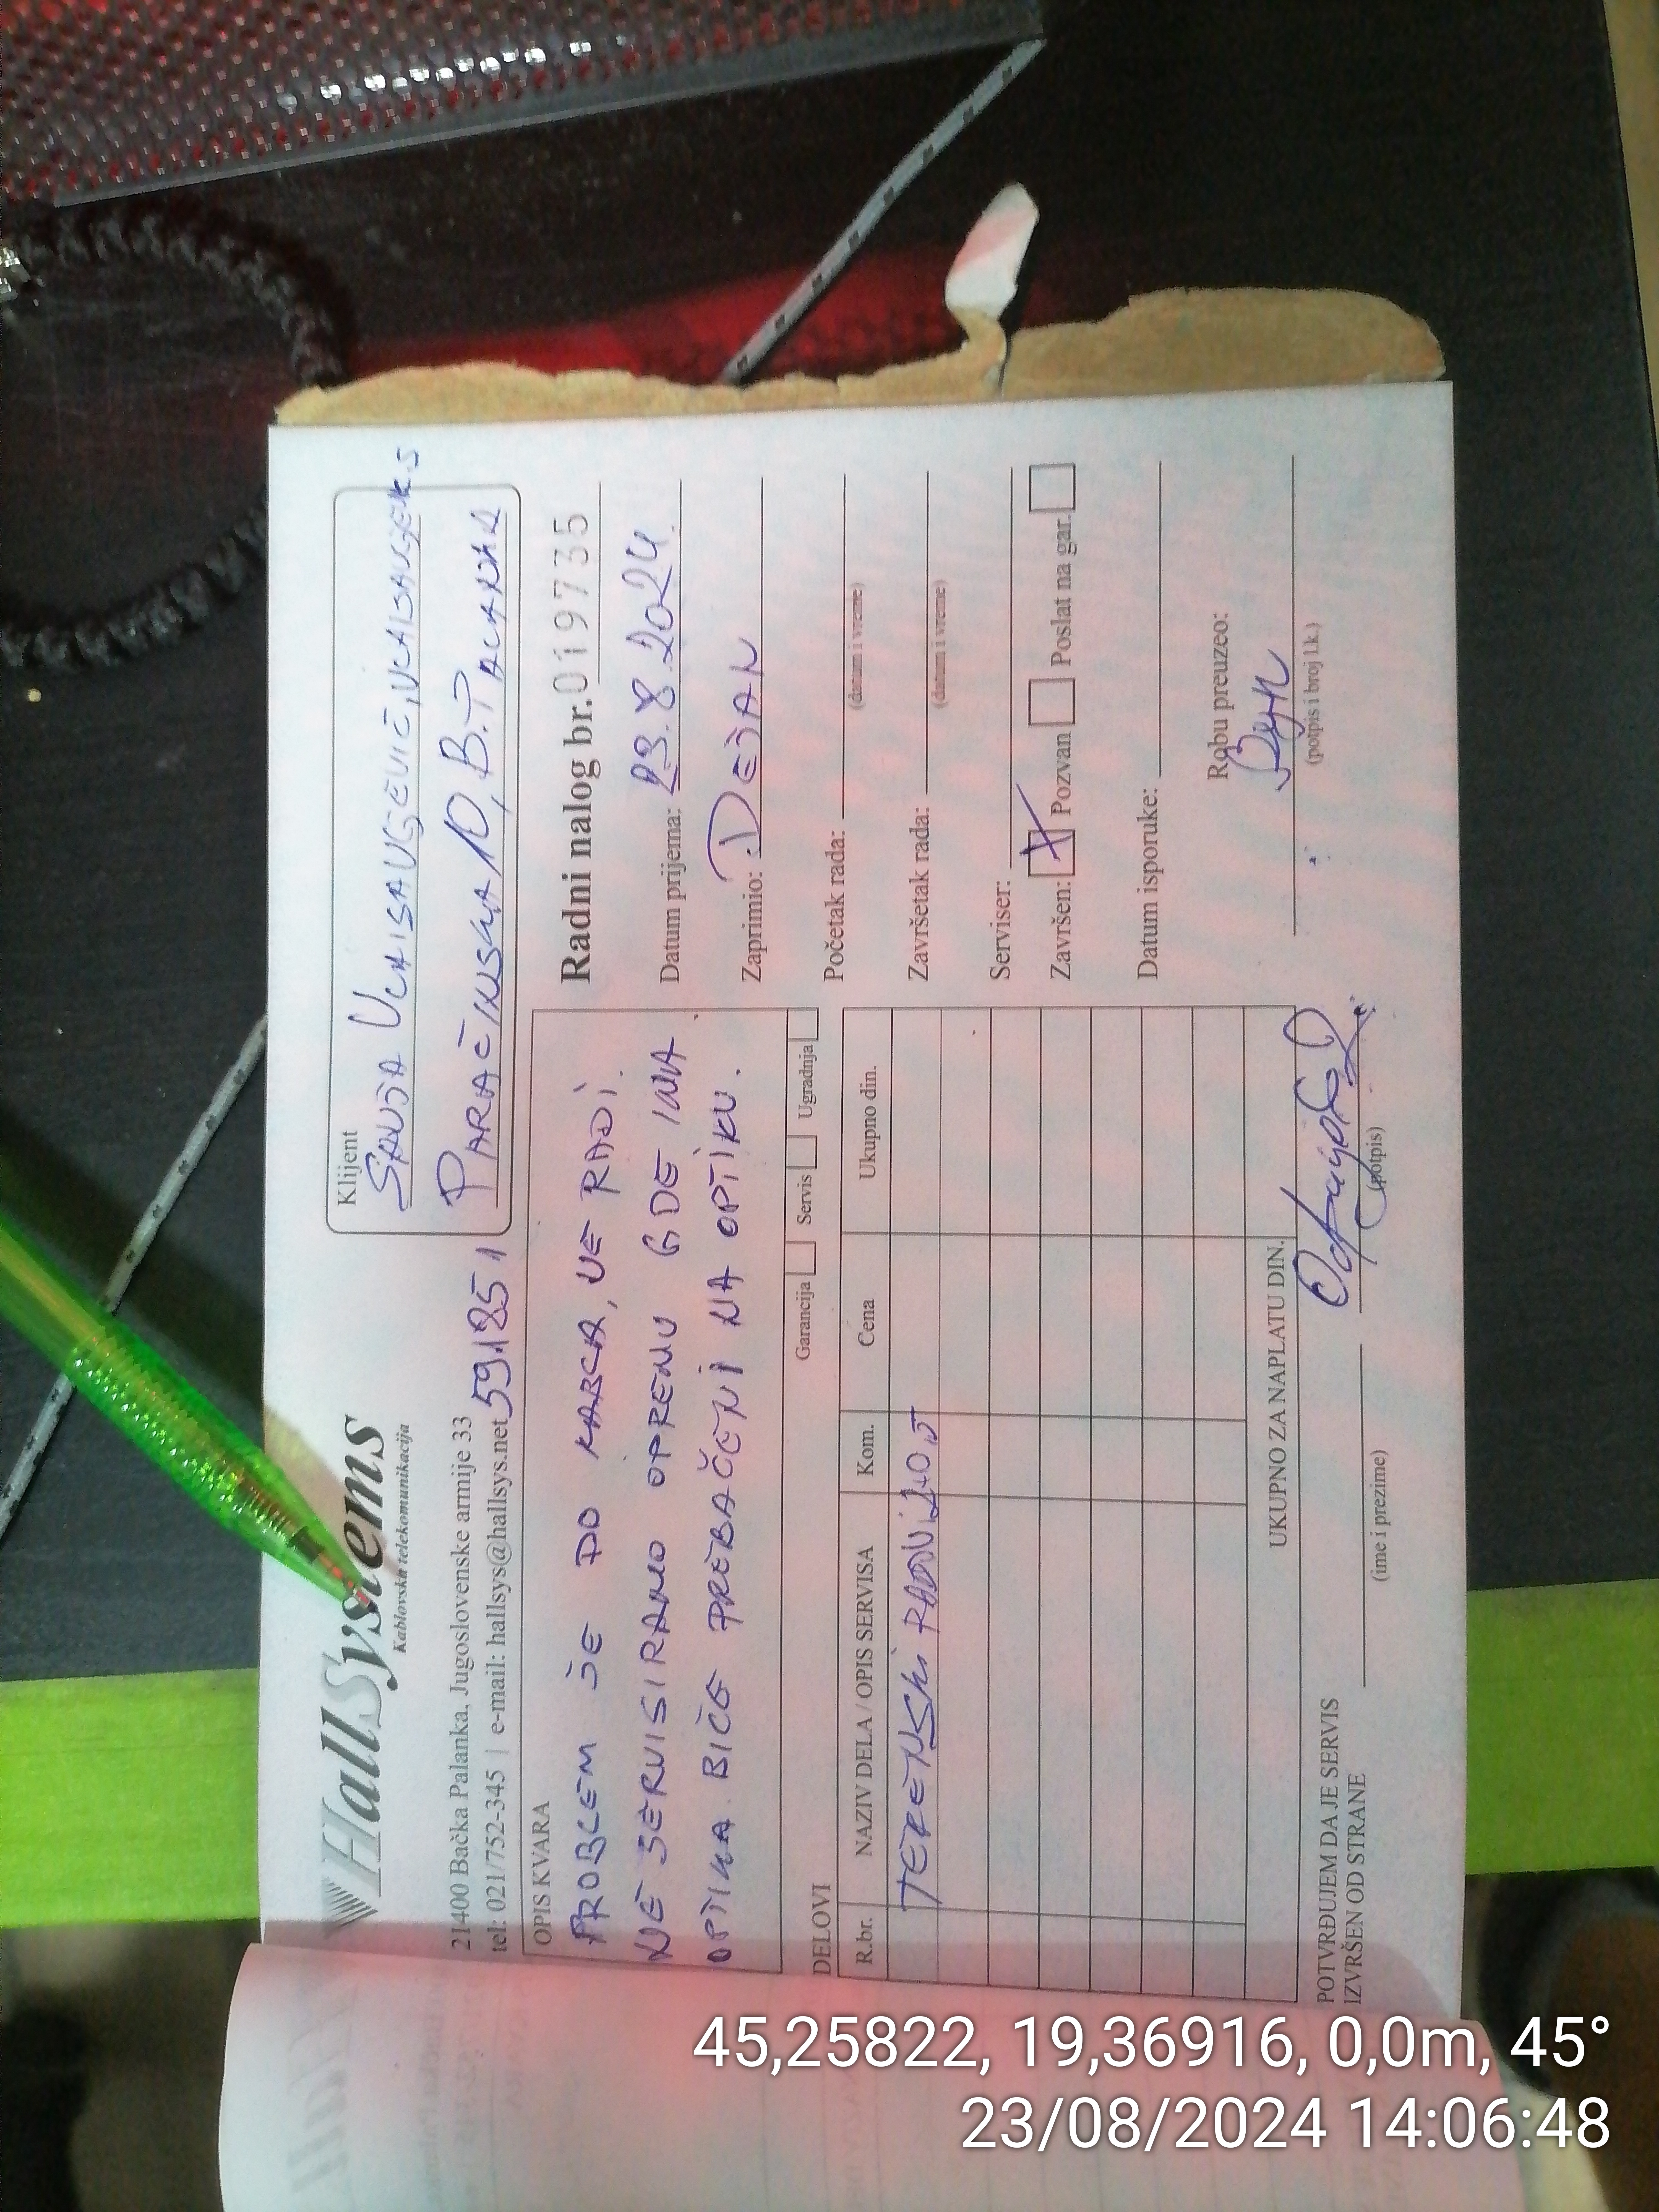 HallSystems
Kablovska telekomunikacija
21400 Bačka Palanka, Jugoslovenske armije 33
tel: 021/752-345 | e-mail: hallsys@hallsys.net 591851
Klijent
PARAĆINSKA 10, B.PALANKA
OPIS KVARA
PROBLEM JE DO KABLA, NE RADI.
NE SERVISIRAMO OPREMU GDE IMA
OPTIKA BIĆE PREBAČENI NA OPTIKU.
Garancija Servis Ugradnja
Radni nalog br. 019735
Datum prijema: 23.8.2024.
Zaprimio: DEJAN
Početak rada:
(datum i vreme)
Završetak rada:
(datum i vreme)
Serviser:
Završen: X Pozvan Poslat na gar.
Datum isporuke:
Robu preuzeo:
(potpis i broj l.k.)
DELOVI
R.br. NAZIV DELA / OPIS SERVISA Kom. Cena Ukupno din.
TERENSKI RADNI
UKUPNO ZA NAPLATU DIN.
POTVRĐUJEM DA JE SERVIS
IZVRŠEN OD STRANE
(ime i prezime) (potpis)
45,25822, 19,36916, 0,0m, 45°
23/08/2024 14:06:48